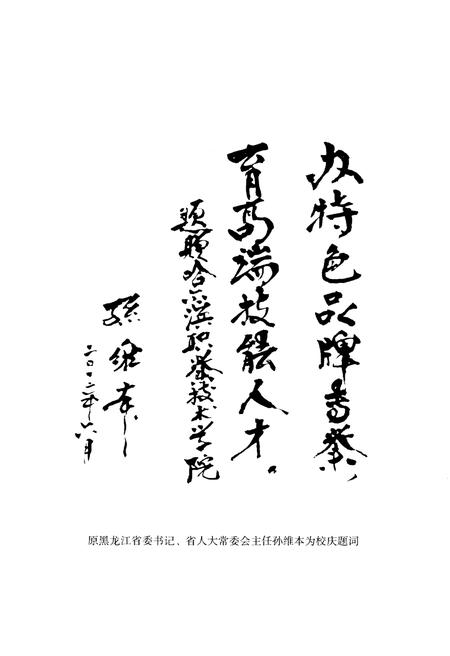 办特色品牌专業
育高端技能人才。
题赠哈尔滨职業技术学院
孫维本
二〇一二年六月
原黑龙江省委书记、省人大常委会主任孙维本为校庆题词